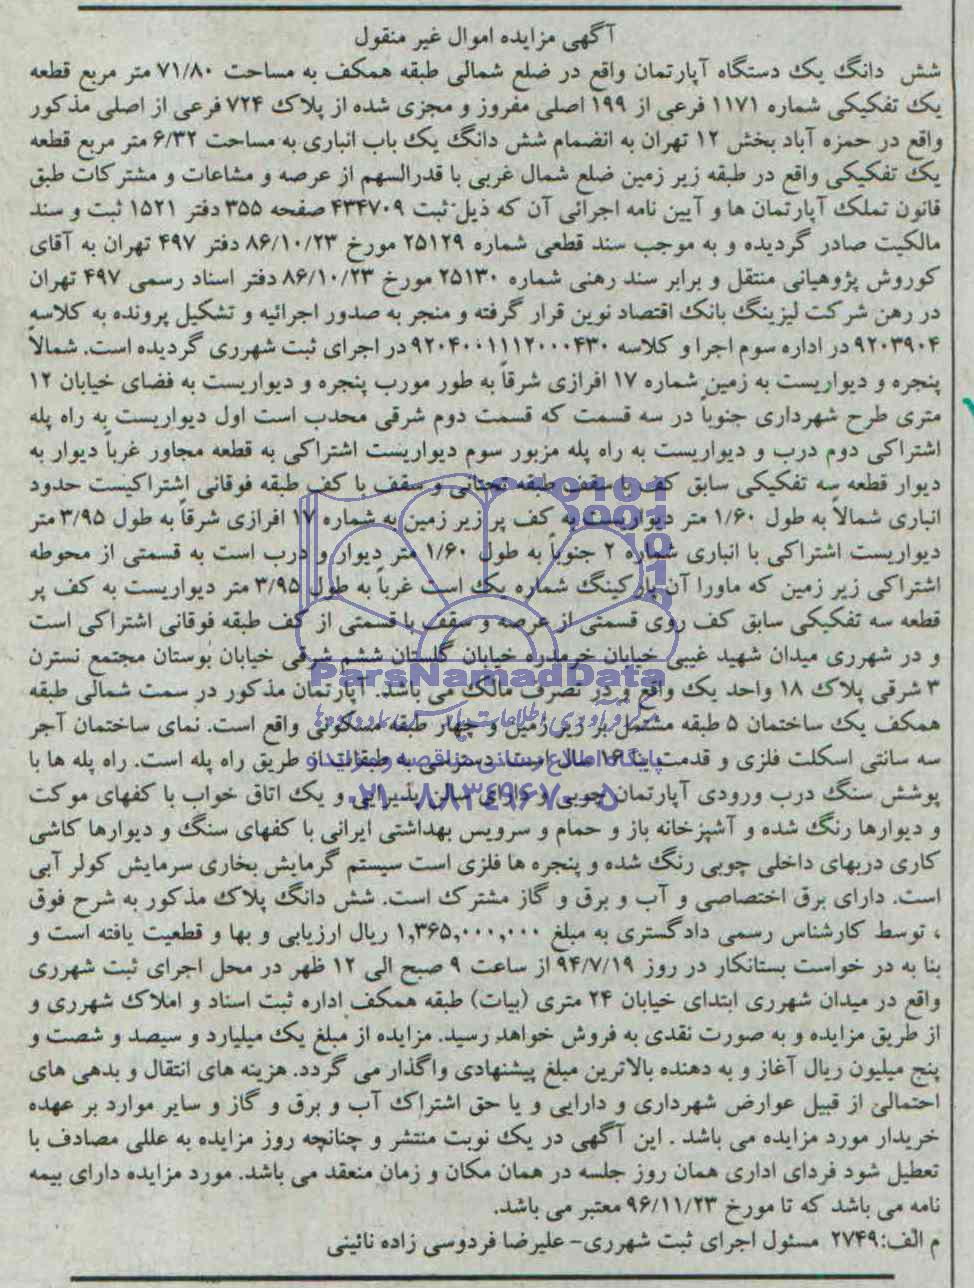 آگهی مزایده اموال غیر منقول
شش دانگ یک دستگاه آپارتمان واقع در ضلع شمالی طبقه همکف به مساحت ۷۱/۸۰ متر مربع قطعه
یک تفکیکی شماره ۱۱۷۱ فرعی از ۱۹۹ اصلی مفروز و مجزی شده از پلاک ۷۲۴ فرعی از اصلی مذکور
واقع در حمزه آباد بخش ۱۲ تهران به انضمام شش دانگ یک باب انباری به مساحت ۶/۳۲ متر مربع قطعه
یک تفکیکی واقع در طبقه زیر زمین ضلع شمال غربی با قدرالسهم از عرصه و مشاعات و مشترکات طبق
قانون تملک آپارتمان ها و آیین نامه اجرائی آن که ذیل ثبت ۴۳۴۷۰۹ صفحه ۳۵۵ دفتر ۱۵۲۱ ثبت و سند
مالکیت صادر گردیده و به موجب سند قطعی شماره ۲۵۱۲۹ مورخ ۸۶/۱۰/۲۳ دفتر ۴۹۷ تهران به آقای
کوروش پژوهیانی منتقل و برابر سند رهنی شماره ۲۵۱۳۰ مورخ ۸۶/۱۰/۲۳ دفتر اسناد رسمی ۴۹۷ تهران
در رهن شرکت لیزینگ بانک اقتصاد نوین قرار گرفته و منجر به صدور اجرائیه و تشکیل پرونده به کلاسه
۹۲۰۳۹۰۴ در اداره سوم اجرا و کلاسه ۹۲۰۴۰۰۱۱۱۲۰۰۰۴۳۰ در اجرای ثبت شهرری گردیده است. شمالاً
پنجره و دیواریست به زمین شماره ۱۷ افرازی شرقاً به طور مورب پنجره و دیواریست به فضای خیابان ۱۲
متری طرح شهرداری جنوباً در سه قسمت که قسمت دوم شرقی محدب است اول دیواریست به راه پله
اشتراکی دوم درب و دیواریست به راه پله مزبور سوم دیواریست اشتراکی به قطعه مجاور غرباً دیوار به
دیوار قطعه سه تفکیکی سابق کف با سقف طبقه تحتانی و سقف با کف طبقه فوقانی اشتراکیست حدود
انباری شمالاً به طول ۱/۶۰ متر دیواریست به کف پر زیر زمین به شماره ۱۷ افرازی شرقاً به طول ۳/۹۵ متر
دیواریست اشتراکی با انباری شماره ۲ جنوباً به طول ۱/۶۰ متر دیوار و درب است به قسمتی از محوطه
اشتراکی زیر زمین که ماورا آن پارکینگ شماره یک است غرباً به طول ۳/۹۵ متر دیواریست به کف پر
قطعه سه تفکیکی سابق کف روی قسمتی از عرصه و سقف با قسمتی از کف طبقه فوقانی اشتراکی است
و در شهرری میدان شهید غیبی خیابان خرمدره خیابان گلستان ششم شرقی خیابان بوستان مجتمع نسترن
ParsNamadData
۳ شرقی پلاک ۱۸ واحد یک واقع و در تصرف مالک می باشد. آپارتمان مذکور در سمت شمالی طبقه
همکف یک ساختمان ۵ طبقه مشتمل بر زیر زمین و چهار طبقه مسکونی واقع است. نمای ساختمان آجر
سه سانتی اسکلت فلزی و قدمت بنا ۱۶ سال است دسترسی به طبقات از طریق راه پله است. راه پله ها با
پایگاه اطلاع رسانی مناقصه و مزایده
پوشش سنگ درب ورودی آپارتمان چوبی و دارای سالن پذیرایی و یک اتاق خواب با کفهای موکت
۰۲۱-۸۸۳۴۹۶۷۰-۵
و دیوارها رنگ شده و آشپزخانه باز و حمام و سرویس بهداشتی ایرانی با کفهای سنگ و دیوارها کاشی
کاری دربهای داخلی چوبی رنگ شده و پنجره ها فلزی است سیستم گرمایش بخاری سرمایش کولر آبی
است. دارای برق اختصاصی و آب و برق و گاز مشترک است. شش دانگ پلاک مذکور به شرح فوق
، توسط کارشناس رسمی دادگستری به مبلغ ۱,۳۶۵,۰۰۰,۰۰۰ ریال ارزیابی و بها و قطعیت یافته است و
بنا به در خواست بستانکار در روز ۹۴/۷/۱۹ از ساعت ۹ صبح الی ۱۲ ظهر در محل اجرای ثبت شهرری
واقع در میدان شهرری ابتدای خیابان ۲۴ متری (بیات) طبقه همکف اداره ثبت اسناد و املاک شهرری و
از طریق مزایده و به صورت نقدی به فروش خواهد رسید. مزایده از مبلغ یک میلیارد و سیصد و شصت و
پنج میلیون ریال آغاز و به دهنده بالاترین مبلغ پیشنهادی واگذار می گردد. هزینه های انتقال و بدهی های
احتمالی از قبیل عوارض شهرداری و دارایی و یا حق اشتراک آب و برق و گاز و سایر موارد بر عهده
خریدار مورد مزایده می باشد . این آگهی در یک نوبت منتشر و چنانچه روز مزایده به عللی مصادف با
تعطیل شود فردای اداری همان روز جلسه در همان مکان و زمان منعقد می باشد. مورد مزایده دارای بیمه
نامه می باشد که تا مورخ ۹۶/۱۱/۲۳ معتبر می باشد.
م الف:۲۷۴۹ مسئول اجرای ثبت شهرری- علیرضا فردوسی زاده نائینی